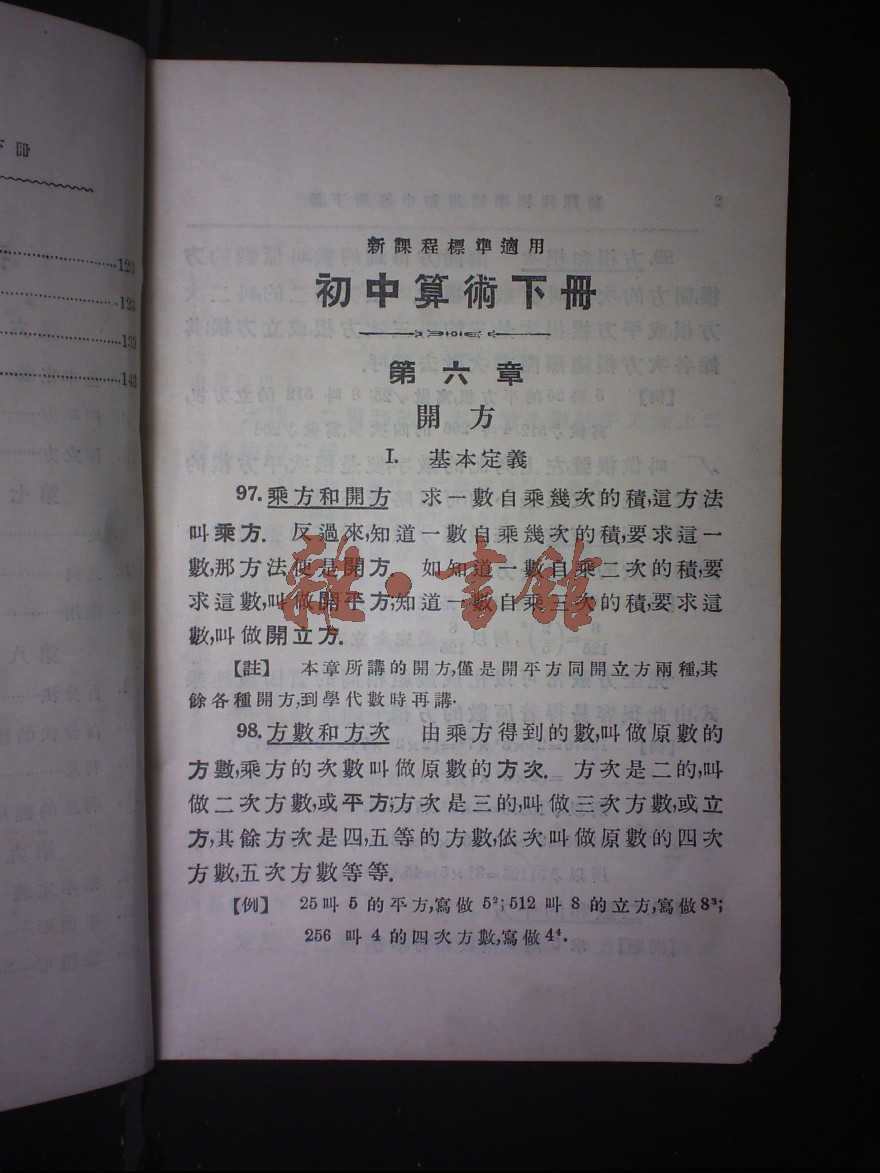 下冊
120
123
139
143
新課程標準適用
初中算術下冊
第六章
開方
I. 基本定義
97. 乘方和開方 求一數自乘幾次的積,這方法
叫乘方. 反過來,知道一數自乘幾次的積,要求這一
數,那方法便是開方. 如知道一數自乘二次的積,要
求這數,叫做開平方;知道一數自乘三次的積,要求這
數,叫做開立方.
【註】 本章所講的開方,僅是開平方同開立方兩種,其
餘各種開方,到學代數時再講.
98. 方數和方次 由乘方得到的數,叫做原數的
方數,乘方的次數叫做原數的方次. 方次是二的,叫
做二次方數,或平方;方次是三的,叫做三次方數,或立
方,其餘方次是四,五等的方數,依次叫做原數的四次
方數,五次方數等等.
【例】 25叫 5 的平方,寫做 5²; 512 叫 8 的立方,寫做8³;
256 叫 4 的四次方數,寫做4⁴.
雜·書館